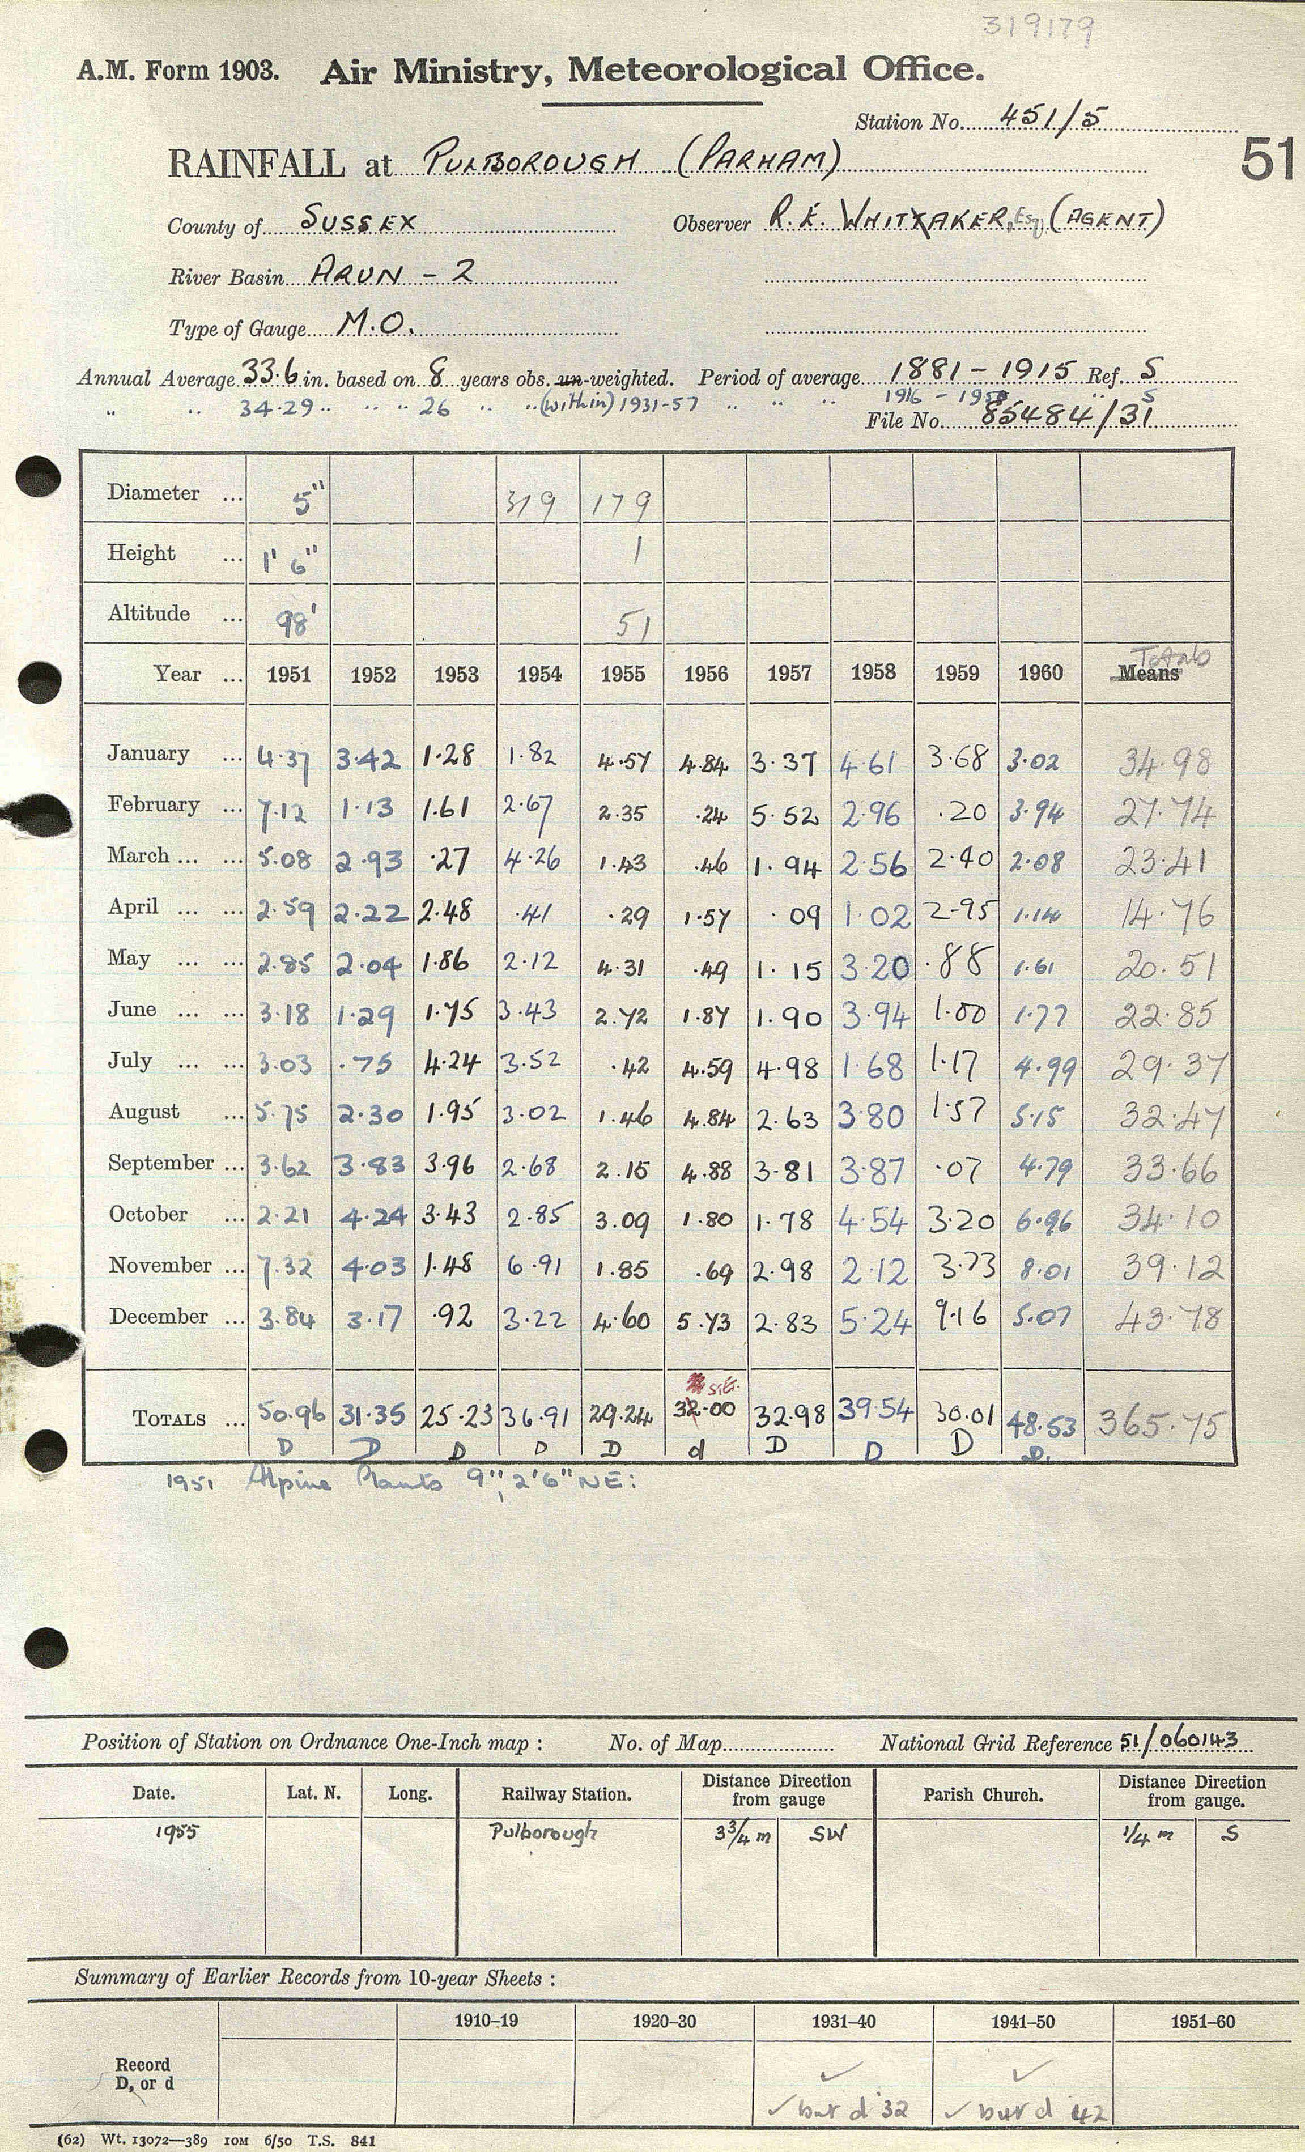 319179
A.M. Form 1903. Air Ministry, Meteorological Office.
Station No. 451/5
RAINFALL at PULBOROUGH (PARHAM)
51
County of SUSSEX Observer R. E. WHITTAKER, Esq (AGENT)
River Basin ARUN - 2
Type of Gauge M.O.
Annual Average 33.6 in. based on 8 years obs. un-weighted. Period of average 1881 - 1915 Ref. S
" " 34.29 " " " 26 " " (within) 1931-57 " " " 1916 - 1950 " S
File No. 85484/31
Diameter ... 5" 319 179
Height ... 1' 6" 1
Altitude ... 98' 51
Totals
Year ... 1951 1952 1953 1954 1955 1956 1957 1958 1959 1960 Means
January ... 4.37 3.42 1.28 1.82 4.57 4.84 3.37 4.61 3.68 3.02 34.98
February ... 7.12 1.13 1.61 2.67 2.35 .24 5.52 2.96 .20 3.94 27.74
March ... ... 5.08 2.93 .27 4.26 1.43 .46 1.94 2.56 2.40 2.08 23.41
April ... ... 2.59 2.22 2.48 .41 .29 1.57 .09 1.02 2.95 1.14 14.76
May ... ... 2.85 2.04 1.86 2.12 4.31 .49 1.15 3.20 .88 1.61 20.51
June ... ... 3.18 1.29 1.75 3.43 2.72 1.87 1.90 3.94 1.00 1.77 22.85
July ... ... 3.03 .75 4.24 3.52 .42 4.59 4.98 1.68 1.17 4.99 29.37
August ... 5.75 2.30 1.95 3.02 1.46 4.84 2.63 3.80 1.57 5.15 32.47
September ... 3.62 3.83 3.96 2.68 2.15 4.88 3.81 3.87 .07 4.79 33.66
October ... 2.21 4.24 3.43 2.85 3.09 1.80 1.78 4.54 3.20 6.96 34.10
November ... 7.32 4.03 1.48 6.91 1.85 .69 2.98 2.12 3.73 8.01 39.12
December ... 3.84 3.17 .92 3.22 4.60 5.73 2.83 5.24 9.16 5.07 43.78
TOTALS ... 50.96 31.35 25.23 36.91 29.24 32.00 32.98 39.54 30.01 48.53 365.75
D D D D D d D D D D.
1951 Alpine Plants 9", 2'6" NE:
Position of Station on Ordnance One-Inch map : No. of Map National Grid Reference 51/060143
Date. Lat. N. Long. Railway Station. Distance Direction from gauge Parish Church. Distance Direction from gauge.
1955 Pulborough 3¾ m SW ¼ m S
Summary of Earlier Records from 10-year Sheets :
1910–19 1920–30 1931–40 1941–50 1951–60
Record D, or d
✓ ✓
✓ but d '32 ✓ but d '42
(62) Wt. 13072—389 10M 6/50 T.S. 841